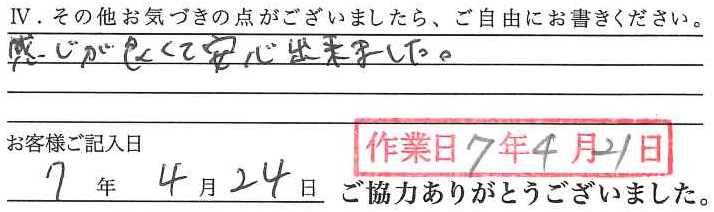 Ⅳ．その他お気づきの点がございましたら、ご自由にお書きください。
感じが良くて安心出来ました。
お客様ご記入日
作業日 7年4月21日
7年 4月24日
ご協力ありがとうございました。